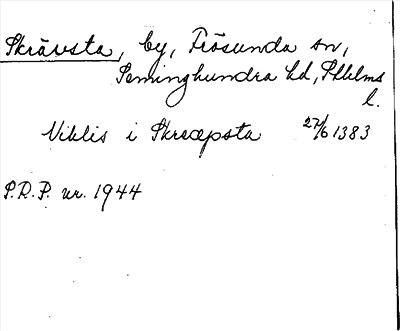 Skrävsta, by, Frösunda sn,
Seminghundra hd, Sthlms
l.
Niklis i Skræpsta 27/6 1383
S.R.P. nr. 1944